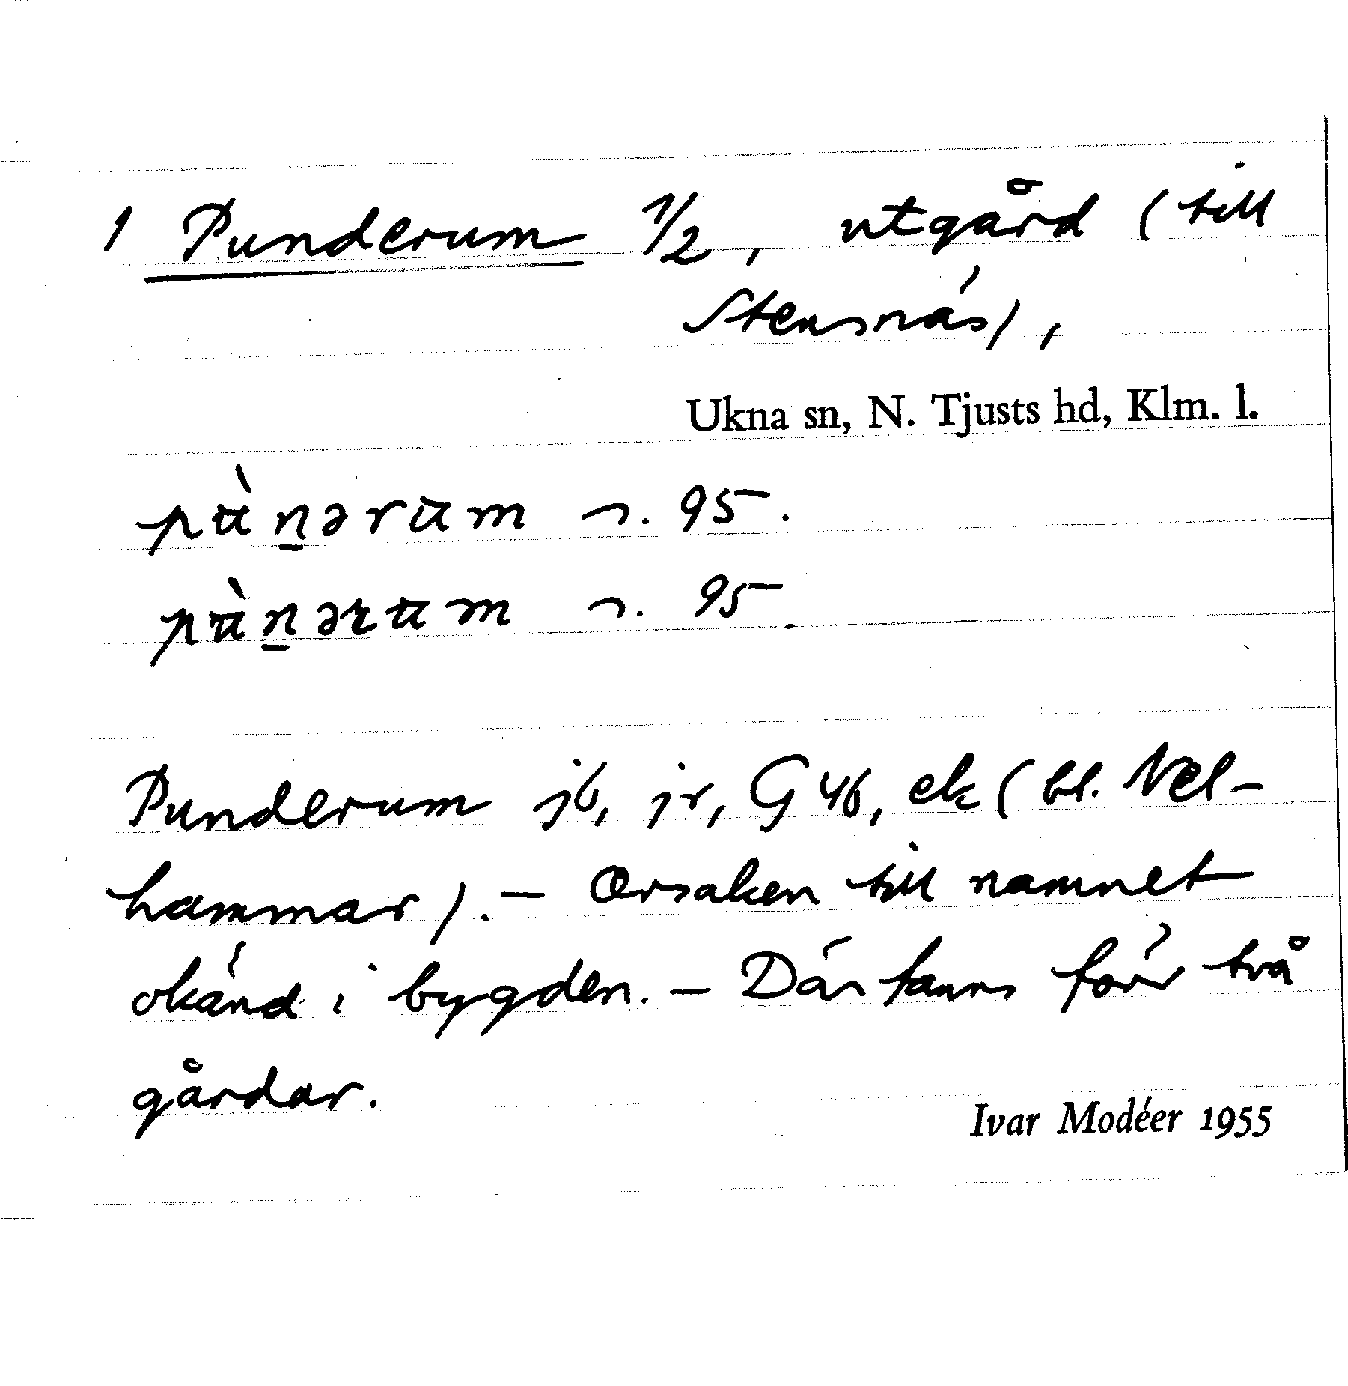 1 Punderum 1/2, utgård (till
Stensnäs),
Ukna sn, N. Tjusts hd, Klm. l.
n. 95.
n. 95.
Punderum jb, jr, G 46, ek (bl. Vel-
hammar). – Orsaken till namnet
okänd i bygden. – Där fanns förr två
gårdar.
Ivar Modéer 1955